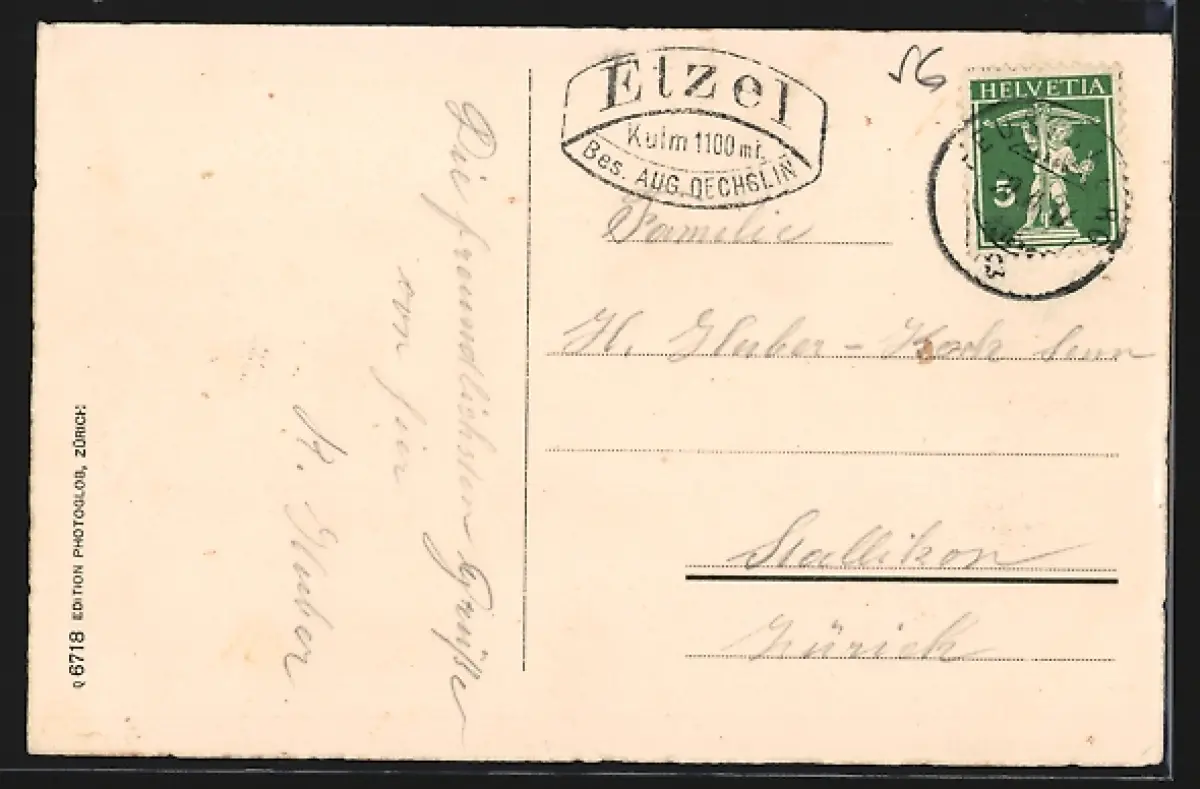 Etzel
Kulm 1100 mt.
Bes. AUG. OECHSLIN
56
HELVETIA
5
Familie
H. Huber - Koch Senn
Stallikon
Zürich
Die freundlichsten Grüße
von hier
H. Huber
Q 6718 EDITION PHOTOGLOB, ZÜRICH